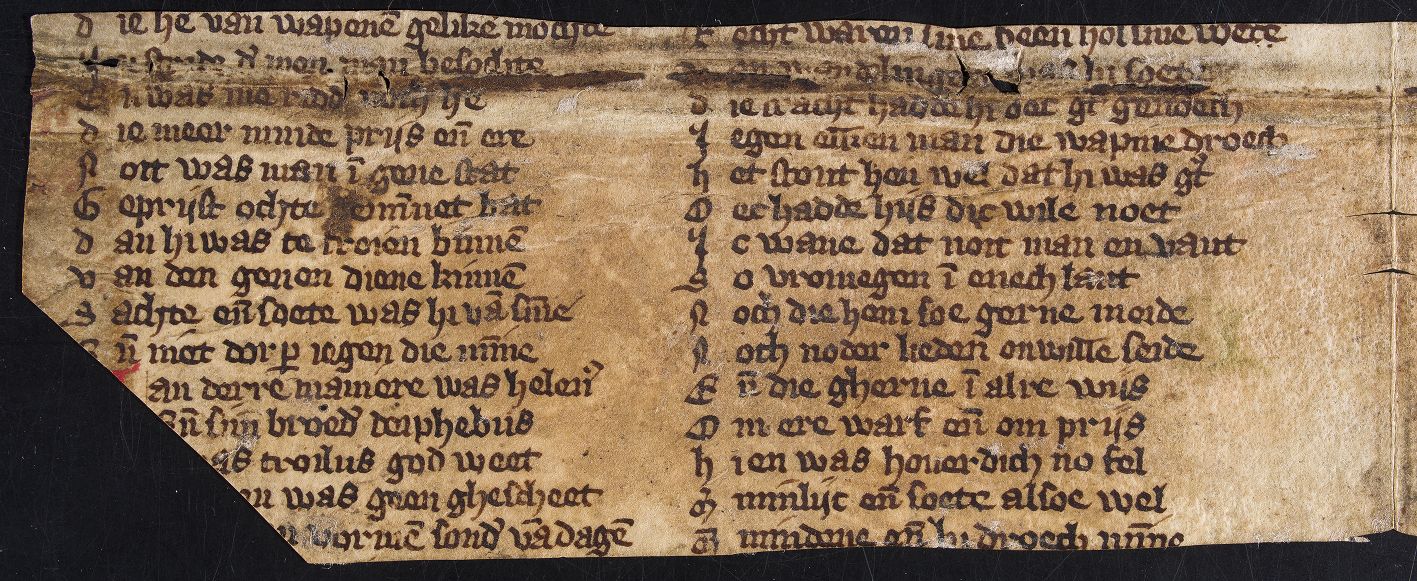 d ie he van wapenē gelike mochte
stride d' men man besochte
E n was nie ridd' noch he
d ie meer minde prijs en̄ ere
N oit was man ī gene stat
G eprijst ochte gemīnet bat
d an hi was te troien binnē
v an den genen diene kinnē
S achte en̄ soete was hi vā sīne
E n̄ niet dorp iegen die mīne
an derre maniere was helen'
en̄ sijn broed' deiphebus
troilus god weet
en was geen ghescheet
vormē sond' vā dagē
R echt waren sine been hol sine voete
wandelinge was hi soete
d ie cracht hadde hi oec gt' genoech
J egen enīen man die wapine droech
h et stont hem wel dat hi was gt'
O ec hadde hijs dic wile noet
J c wane dat noit man en vant
S o vromegen ī enech lant
N och die hem soe gerne meide
N och noder lieden onwille seide
E n̄ die gherne ī alre wijs
O m ere warf en̄ om prijs
h ien was houerdich no fel
M minlijc en̄ soete alsoe wel
mindene en̄ hi droech mīne